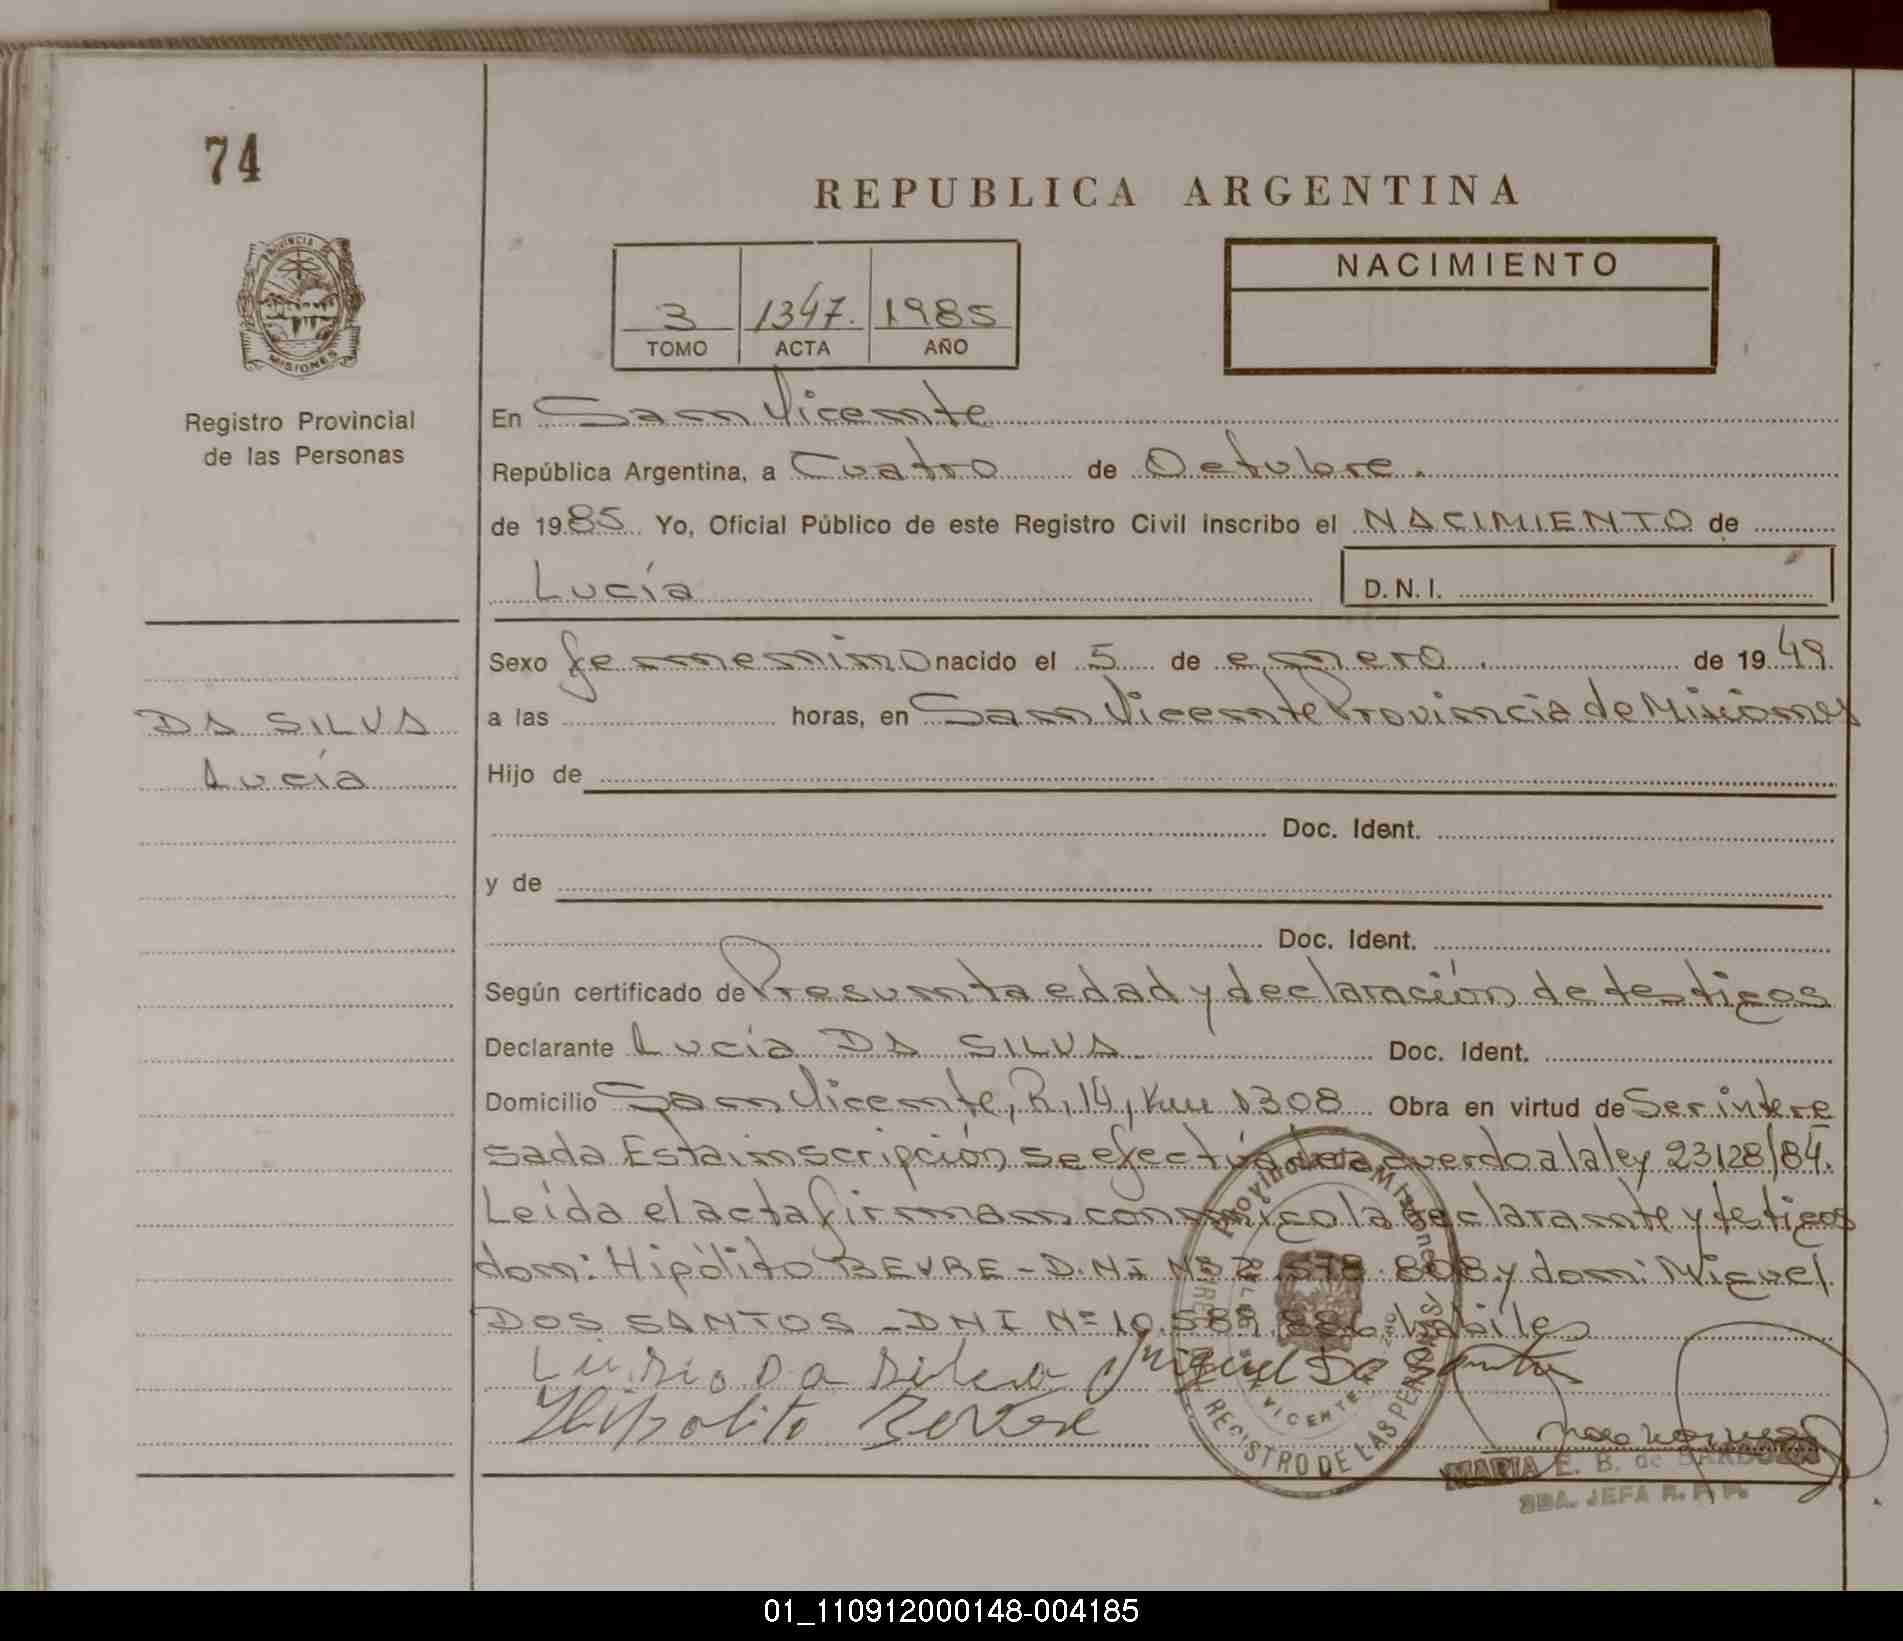 74
REPUBLICA ARGENTINA
PROVINCIA
MISIONES
3 1347. 1985
TOMO ACTA AÑO
NACIMIENTO
Registro Provincial
de las Personas
En San Vicente
República Argentina, a Cuatro de Octubre.
de 1985 Yo, Oficial Público de este Registro Civil inscribo el NACIMIENTO de
Lucía D.N.I.
Sexo femenino nacido el 5 de enero de 1949
DA SILVA
Lucía
a las horas, en San Vicente Provincia de Misiones
Hijo de
Doc. Ident.
y de
Doc. Ident.
Según certificado de Presunta edad y declaración de testigos
Declarante Lucía DA SILVA Doc. Ident.
Domicilio San Vicente, R. 14, Km 1308 Obra en virtud de Ser intere
sada Esta inscripción se efectúa de acuerdo a la ley 23128/84.
Leída el acta firman conmigo la declarante y testigos
don: Hipólito BEVRE - D.N.I Nº 578.808 y don: Miguel
DOS SANTOS - DNI Nº 10.589. habiles
Da Silva Miguel Do Santos
Hipolito
Provincia de Misiones
VICENTE
REGISTRO DE LAS PERSONAS
MARIA E. B. de BARBOZA
JEFA R. P. P.
01_110912000148-004185